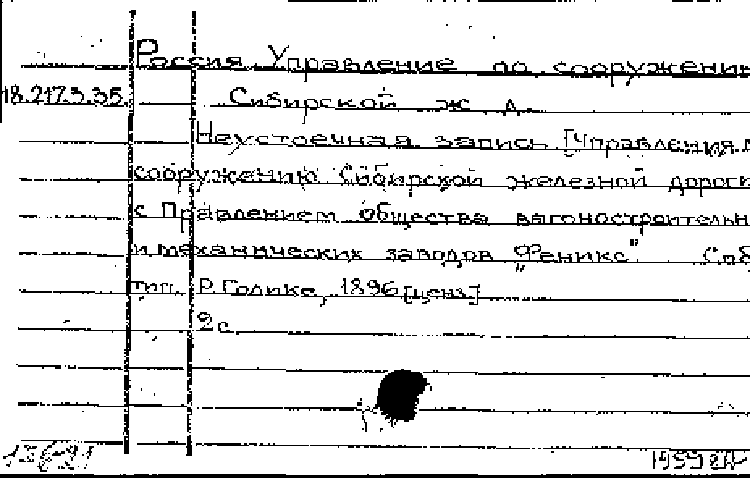 Россия. Управление по сооружению
18.217.3.35. Сибирской ж. д.
Неустоечная запись [Управления п
сооружению Сибирской железной дороги
с Правлением Общества вагоностроительн
и механических заводов "Феникс". Спб
тип. Р. Голике, 1896 [ценз]
2 с.